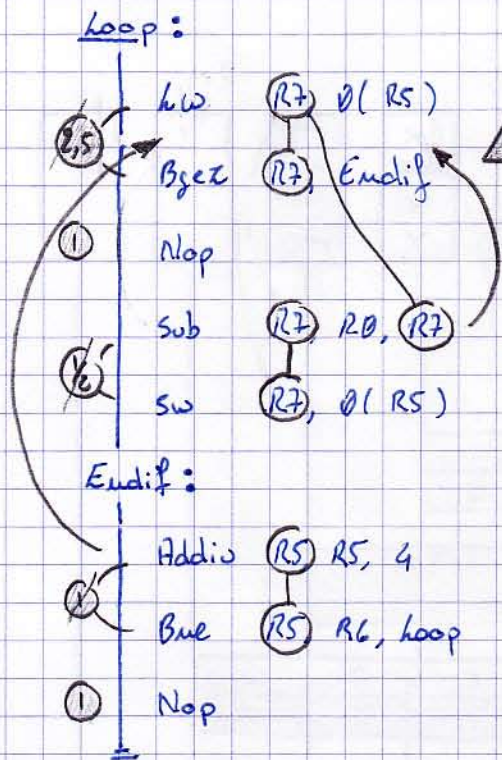 Loop :
Lw R7 0( R5 )
2,5
Bgez R7, Endif
1 Nop
Sub R7, R0, R7
1/2
Sw R7, 0( R5 )
Endif :
Addiu R5 R5, 4
1
Bne R5 R6, Loop
1 Nop